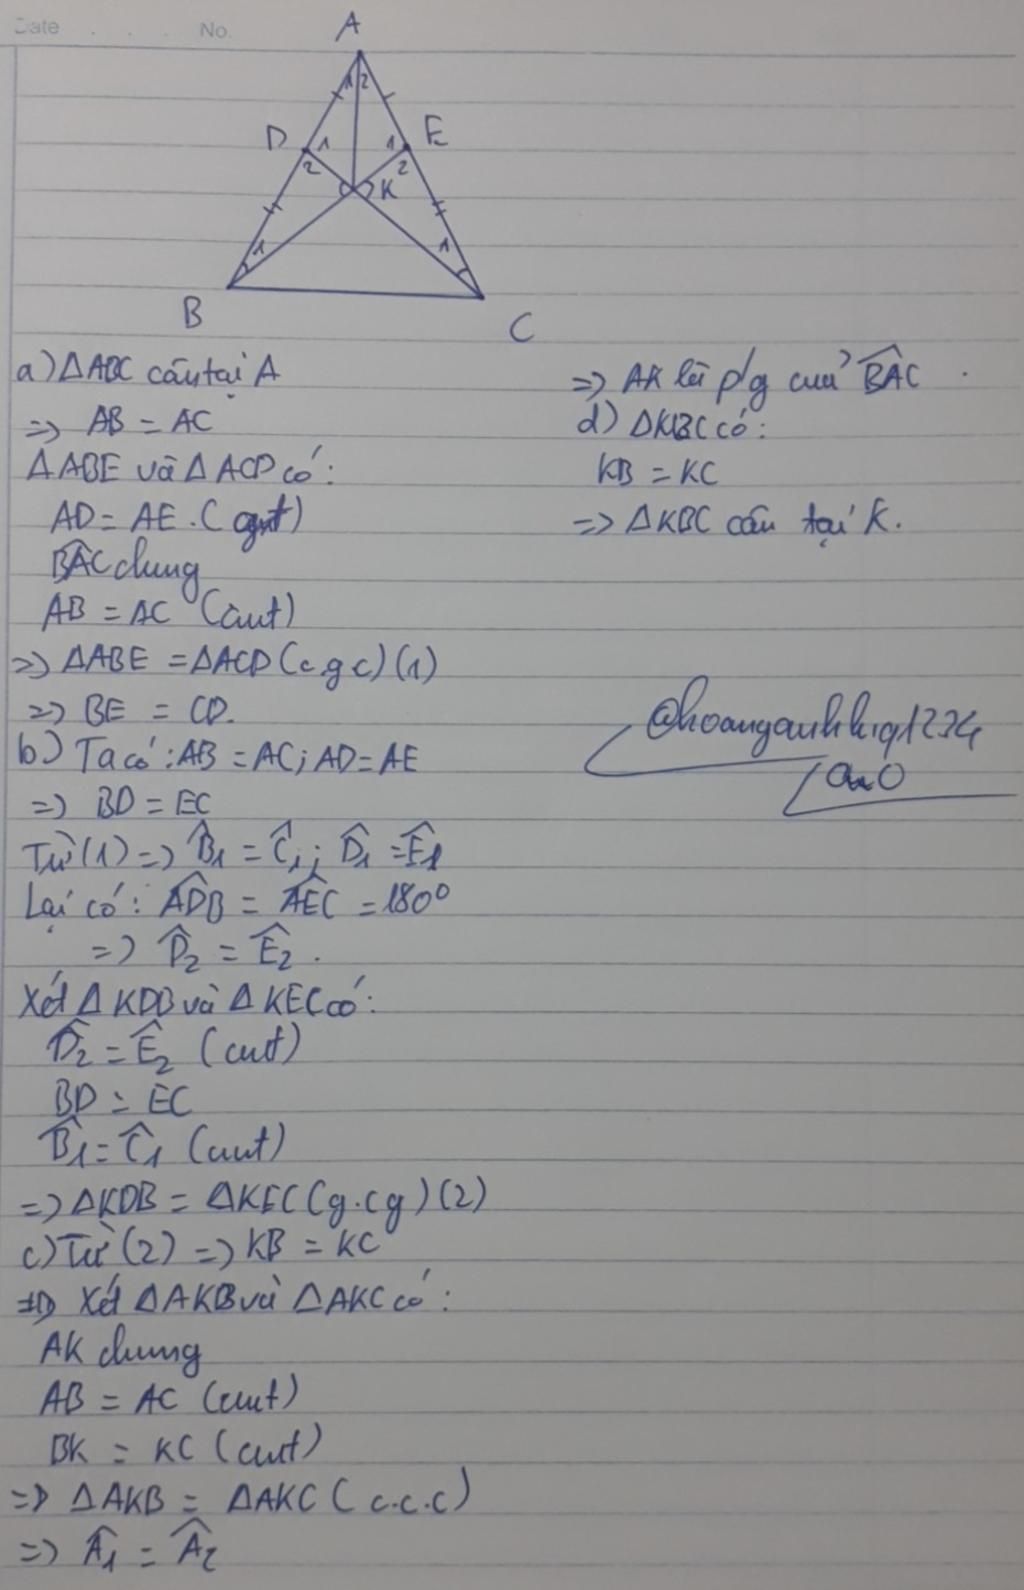 Date . . . No.
A
1 2
D 1 1 E
2 2
K
1 1
B
C
a) ΔABC cân tại A
=> AB = AC
ΔABE và ΔACD có:
AD = AE. (gmt)
B̂AC chung
AB = AC (cmt)
=> ΔABE = ΔACD (c.g.c) (1)
=> BE = CD.
b) Ta có: AB = AC; AD = AE
=> BD = EC
Từ (1) => B̂1 = Ĉ1; D̂1 = Ê1
Lại có: ÂDB = ÂEC = 180°
=> D̂2 = Ê2.
Xét ΔKDB và ΔKEC có:
D̂2 = Ê2 (cmt)
BD = EC
B̂1 = Ĉ1 (cmt)
=> ΔKDB = ΔKEC (g.cg) (2)
c) Từ (2) => KB = KC
=> Xét ΔAKB và ΔAKC có:
AK chung
AB = AC (cmt)
BK = KC (cmt)
=> ΔAKB = ΔAKC (c.c.c)
=> Â1 = Â2
=> AK là p/g của B̂AC.
d) ΔKBC có:
KB = KC
=> ΔKBC cân tại K.
@hoanganhkiq1234